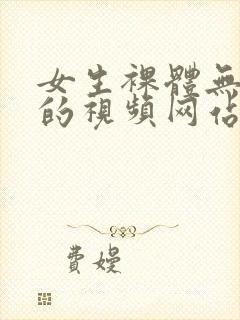 女生裸體無
的視頻网站
費嫚